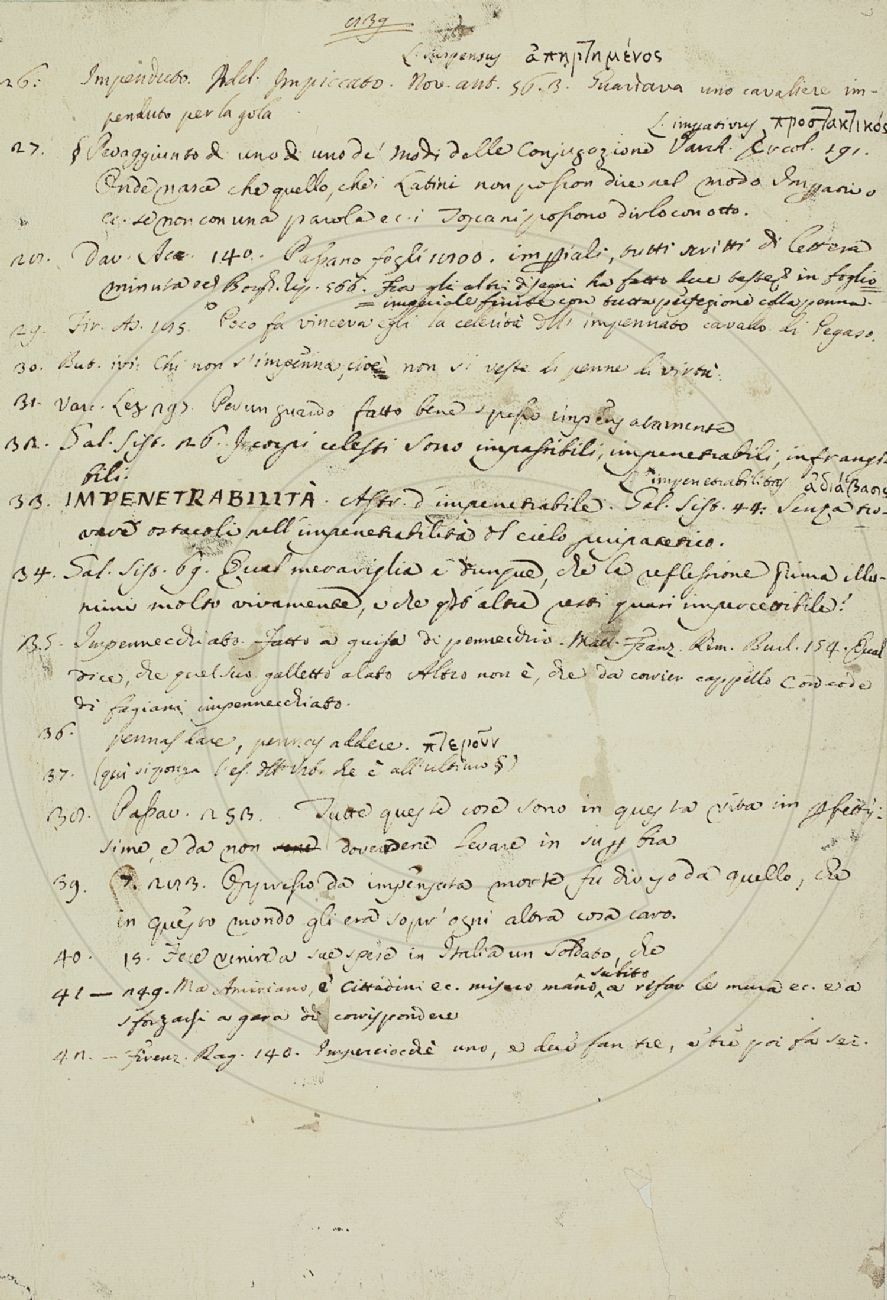 L. suspensus ἀπηρτημένος
26. Impenduto. Add. Impiccato. Nov. ant. 56. 3. Guardava uno cavaliere im-
penduto per la gola
L. imperativus, προστακτικός
27. § Per aggiunto di uno de' modi delle Conjugazione Varch. Ercol. 191.
Onde nasce che quello, che i Latini non posson dire nel modo Imperativo
ec. se non con una parola ec. i Toscani possono dirlo con otto.
28. Dav. Acc. 140. Passano fogli imperiali, tutti scritti di lettera
minuta ec. Borgh. Rip. Fra gli altri disegni ha fatto due teste in foglio
= imperiale finite con tutta perfezione colla penna.
29. Fir. As. Poco fa vinceva egli la celerità dell' impennato cavallo di Pegaso.
30. But. ivi: Chi non s'impenna, cioè non si veste di penne di virtù.
31. Varc. Lez. Per un guardo fatto bene spesso impensatamente
32. Gal. Sist. 26. I corpi celesti sono impassibili, impenetrabili, infrangi-
bili.
L. impenetrabilitas
33. IMPENETRABILITÀ. Astr. d'impenetrabile. Gal. Sist. 44. Senza tro-
vare ostacoli nell'impenetrabilità del cielo peripatetico.
34. Gal. Sist. 69. Qual meraviglia è dunque, che la reflessione prima illu-
mini molto vivamente, e che quest'altra resti quasi impercettibile?
35. Impennecchiato. Fatto a guisa di pennecchio. Matt. Franz. Rim. Burl. 154. Qual
dice, che quel suo galletto alato Altro non è, che da corrier cappello Con code
di fagiani impennecchiato.
36. pennas dare, pennas addere. πτεροῦν
37. (qui si ponga l'es. dell' Urb. che è all'ultimo §)
38. Passav. 253. Tutte queste cose sono in questa vita imperfettis-
sime, e da non dovere levare in superbia
39. Oppresso da impensata morte fu diviso da quello, che
in questo mondo gli era sopr' ogni altra cosa caro.
40. 15. Fece venire a sue spese in Italia un soldato, che
subito
41 — 149. Ma Amiriano, e Cittadini ec. misero mano a rifar le mura ec. e a
sforzarsi a gara di corrispondere
42. — Firenz. Rag. 140. Imperciocchè uno, e due fan tre, e tre poi fa sei.